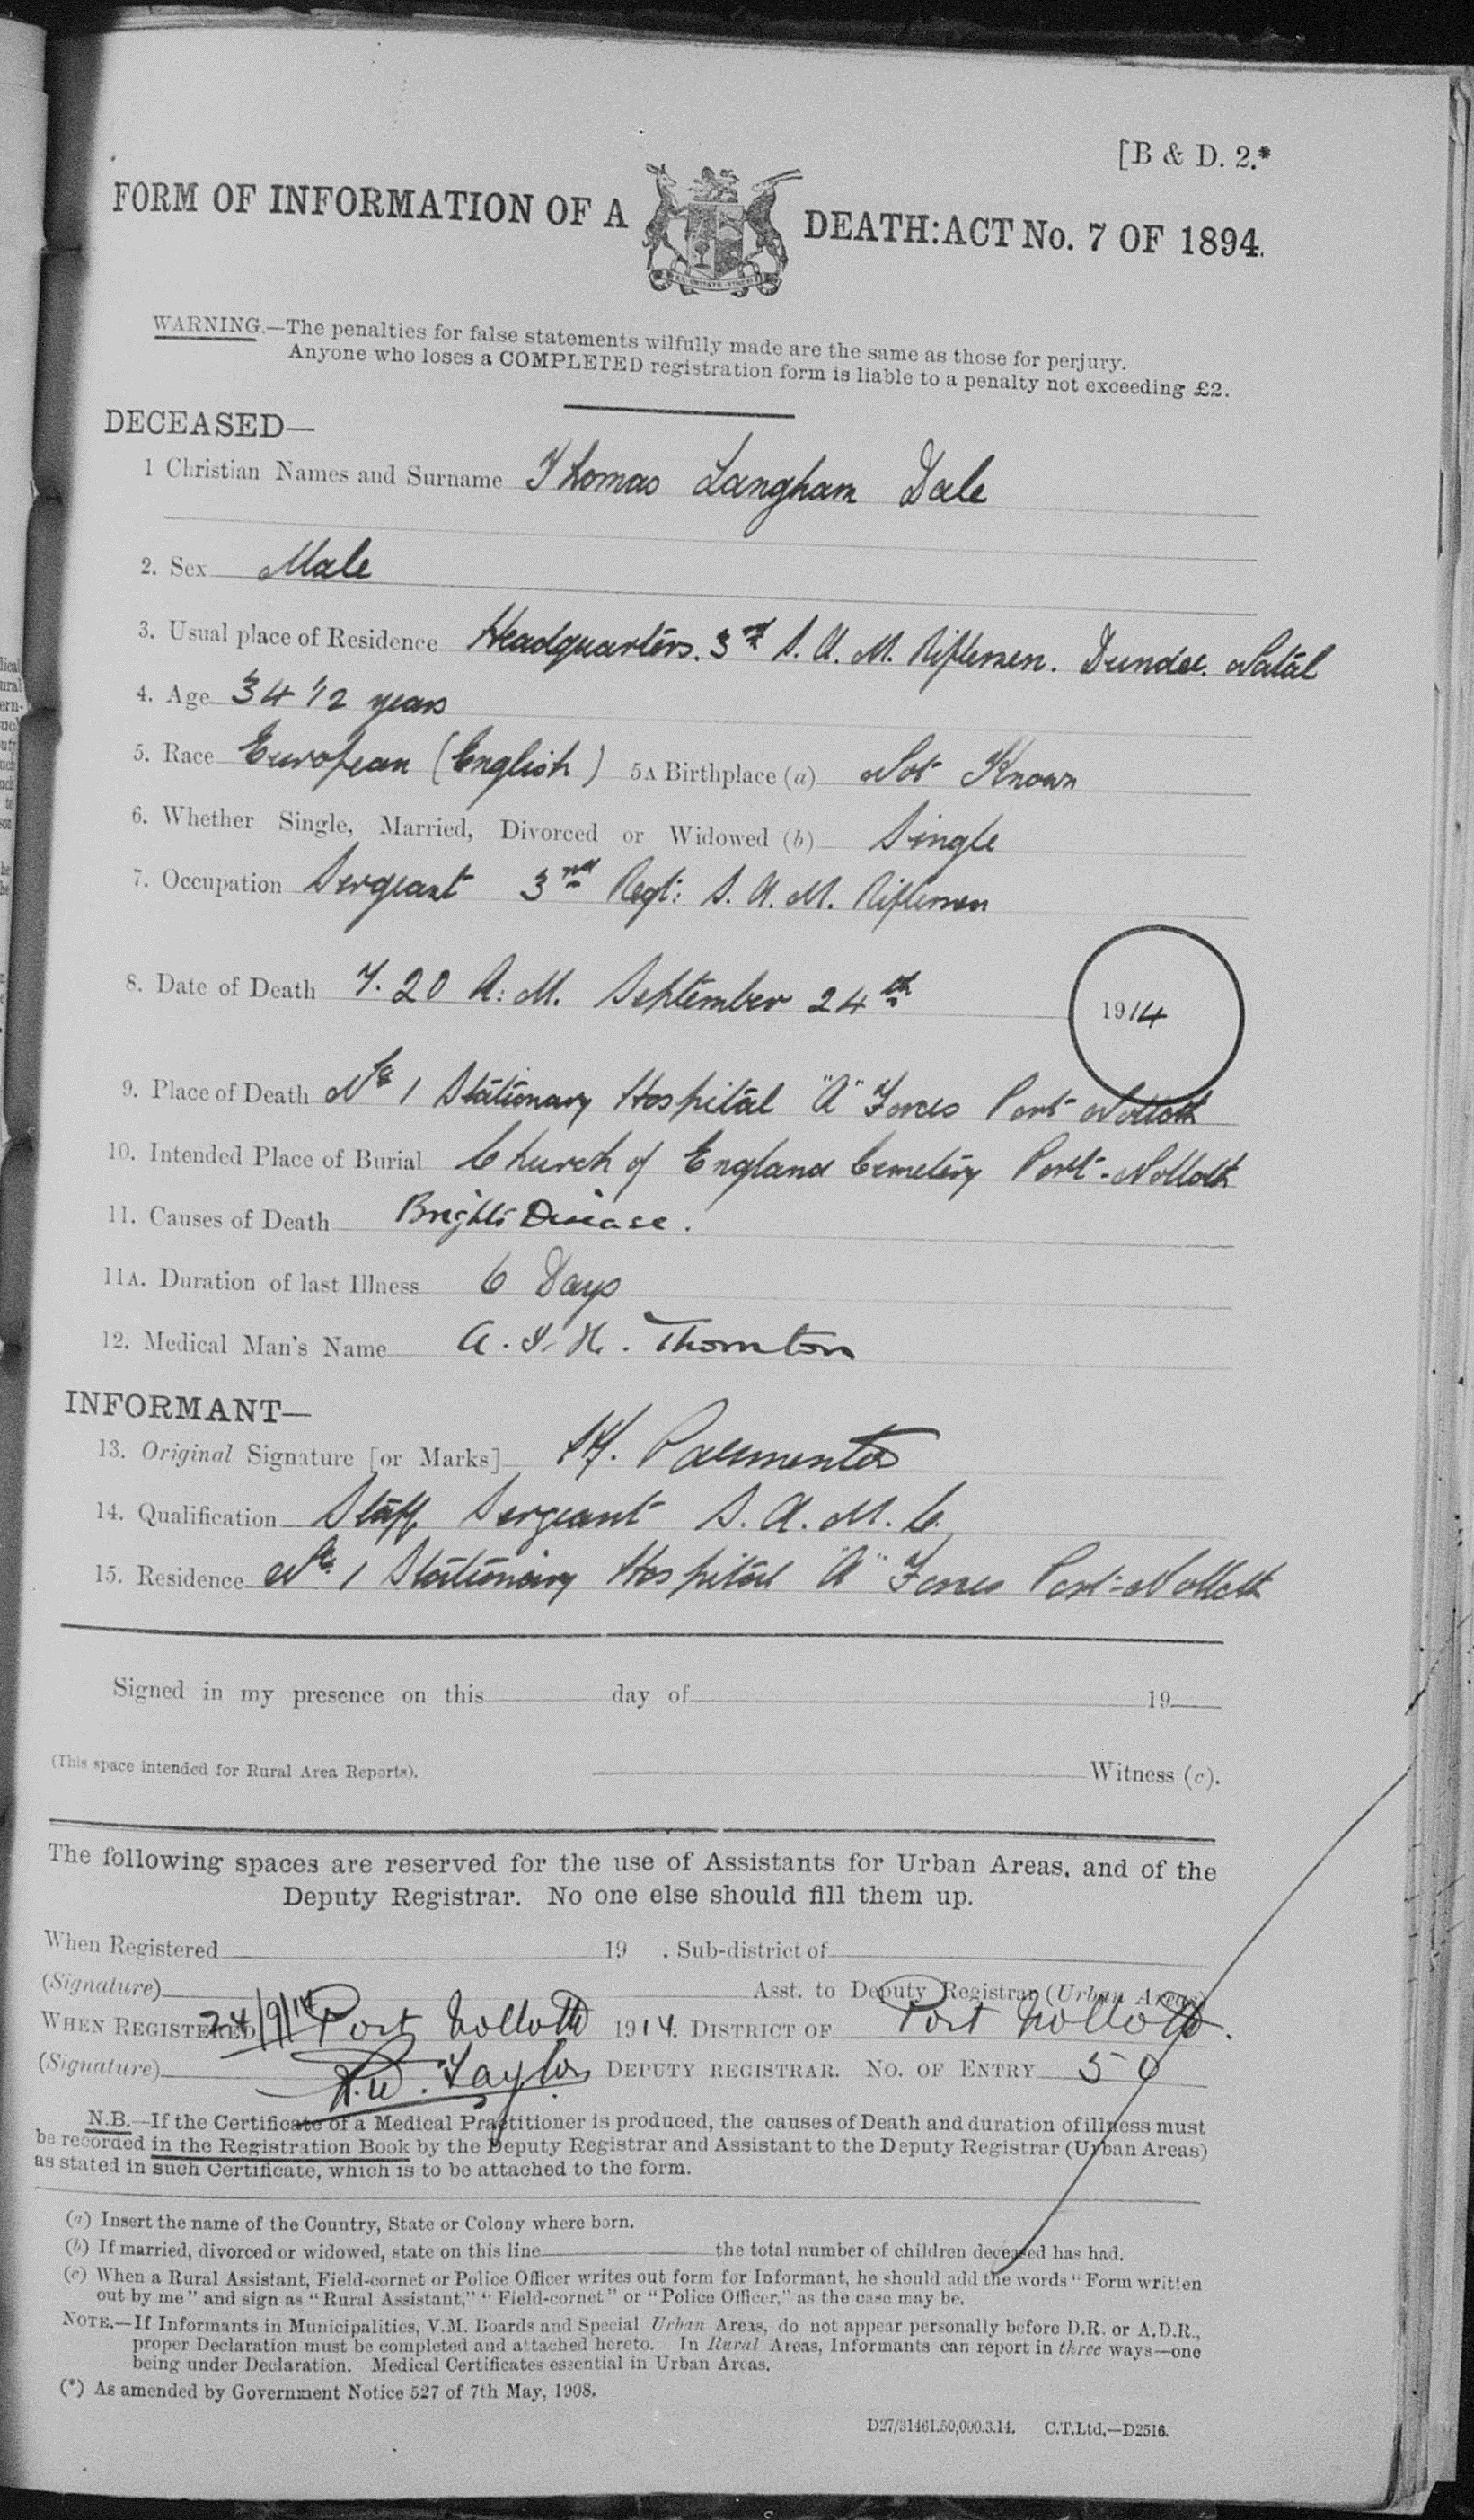 [B & D. 2.*
FORM OF INFORMATION OF A DEATH: ACT No. 7 OF 1894.
WARNING.—The penalties for false statements wilfully made are the same as those for perjury.
Anyone who loses a COMPLETED registration form is liable to a penalty not exceeding £2.
DECEASED—
1 Christian Names and Surname Thomas Langham Dale
2. Sex Male
3. Usual place of Residence Headquarters. 3rd S. A. M. Riflemen. Dundee. Natal
4. Age 34 1/2 years
5. Race European (English) 5A Birthplace (a) Not Known
6. Whether Single, Married, Divorced or Widowed (b) Single
7. Occupation Sergeant 3rd Regt: S. A. M. Riflemen
8. Date of Death 7.20 A:M. September 24th 1914
9. Place of Death No 1 Stationary Hospital "A" Forces Port Nolloth
10. Intended Place of Burial Church of England Cemetery Port-Nolloth
11. Causes of Death Brights Disease.
11A. Duration of last Illness 6 Days
12. Medical Man's Name Thornton
INFORMANT—
13. Original Signature [or Marks]
14. Qualification Staff Sergeant S. A. M. C.
15. Residence No. 1 Stationary Hospital "A" Forces Port-Nolloth
Signed in my presence on this day of 19
(This space intended for Rural Area Reports). Witness (c).
The following spaces are reserved for the use of Assistants for Urban Areas, and of the
Deputy Registrar. No one else should fill them up.
When Registered 19 . Sub-district of
(Signature) Asst. to Deputy Registrar (Urban Areas)
WHEN REGISTERED 24/9/14 Port Nolloth 1914. DISTRICT OF Port Nolloth.
(Signature) Taylor DEPUTY REGISTRAR. NO. OF ENTRY 50
N.B.—If the Certificate of a Medical Practitioner is produced, the causes of Death and duration of illness must
be recorded in the Registration Book by the Deputy Registrar and Assistant to the Deputy Registrar (Urban Areas)
as stated in such Certificate, which is to be attached to the form.
(a) Insert the name of the Country, State or Colony where born.
(b) If married, divorced or widowed, state on this line the total number of children deceased has had.
(c) When a Rural Assistant, Field-cornet or Police Officer writes out form for Informant, he should add the words "Form written
out by me" and sign as "Rural Assistant," "Field-cornet" or "Police Officer," as the case may be.
NOTE.—If Informants in Municipalities, V.M. Boards and Special Urban Areas, do not appear personally before D.R. or A.D.R.,
proper Declaration must be completed and attached hereto. In Rural Areas, Informants can report in three ways—one
being under Declaration. Medical Certificates essential in Urban Areas.
(*) As amended by Government Notice 527 of 7th May, 1908.
D27/31461.50,000.3.14. C.T.Ltd,—D2516.